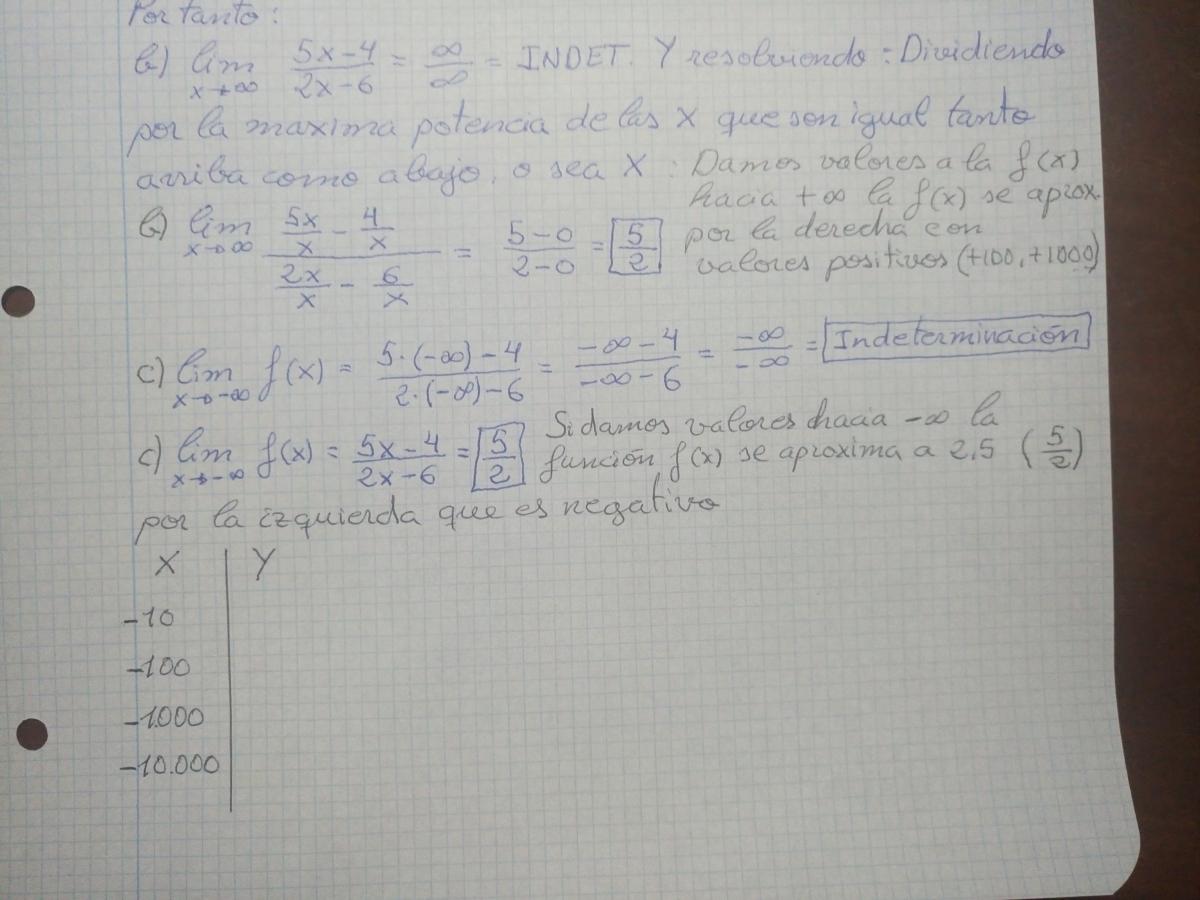 Por tanto:
b) lim x→∞ (5x-4)/(2x-6) = ∞/∞ = INDET. Y resolviendo: Dividiendo
por la maxima potencia de las X que son igual tanto
arriba como abajo, o sea X: Damos valores a la f(x)
hacia +∞ la f(x) se aprox.
por la derecha con
valores positivos (+100, +1000)
b) lim x→∞ (5x/x - 4/x)/(2x/x - 6/x) = (5-0)/(2-0) = 5/2
c) lim x→-∞ f(x) = (5·(-∞)-4)/(2·(-∞)-6) = (-∞-4)/(-∞-6) = -∞/-∞ = Indeterminación
c) lim x→-∞ f(x) = (5x-4)/(2x-6) = 5/2 Si damos valores hacia -∞ la
función f(x) se aproxima a 2,5 (5/2)
por la izquierda que es negativo
X Y
-10
-100
-1.000
-10.000